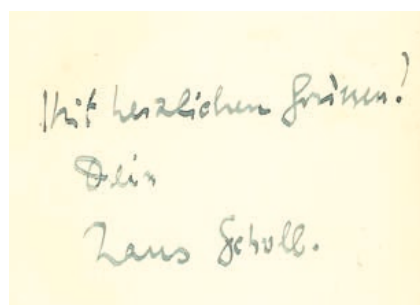 Mit herzlichen Grüssen!
Dein
Hans Scholl.